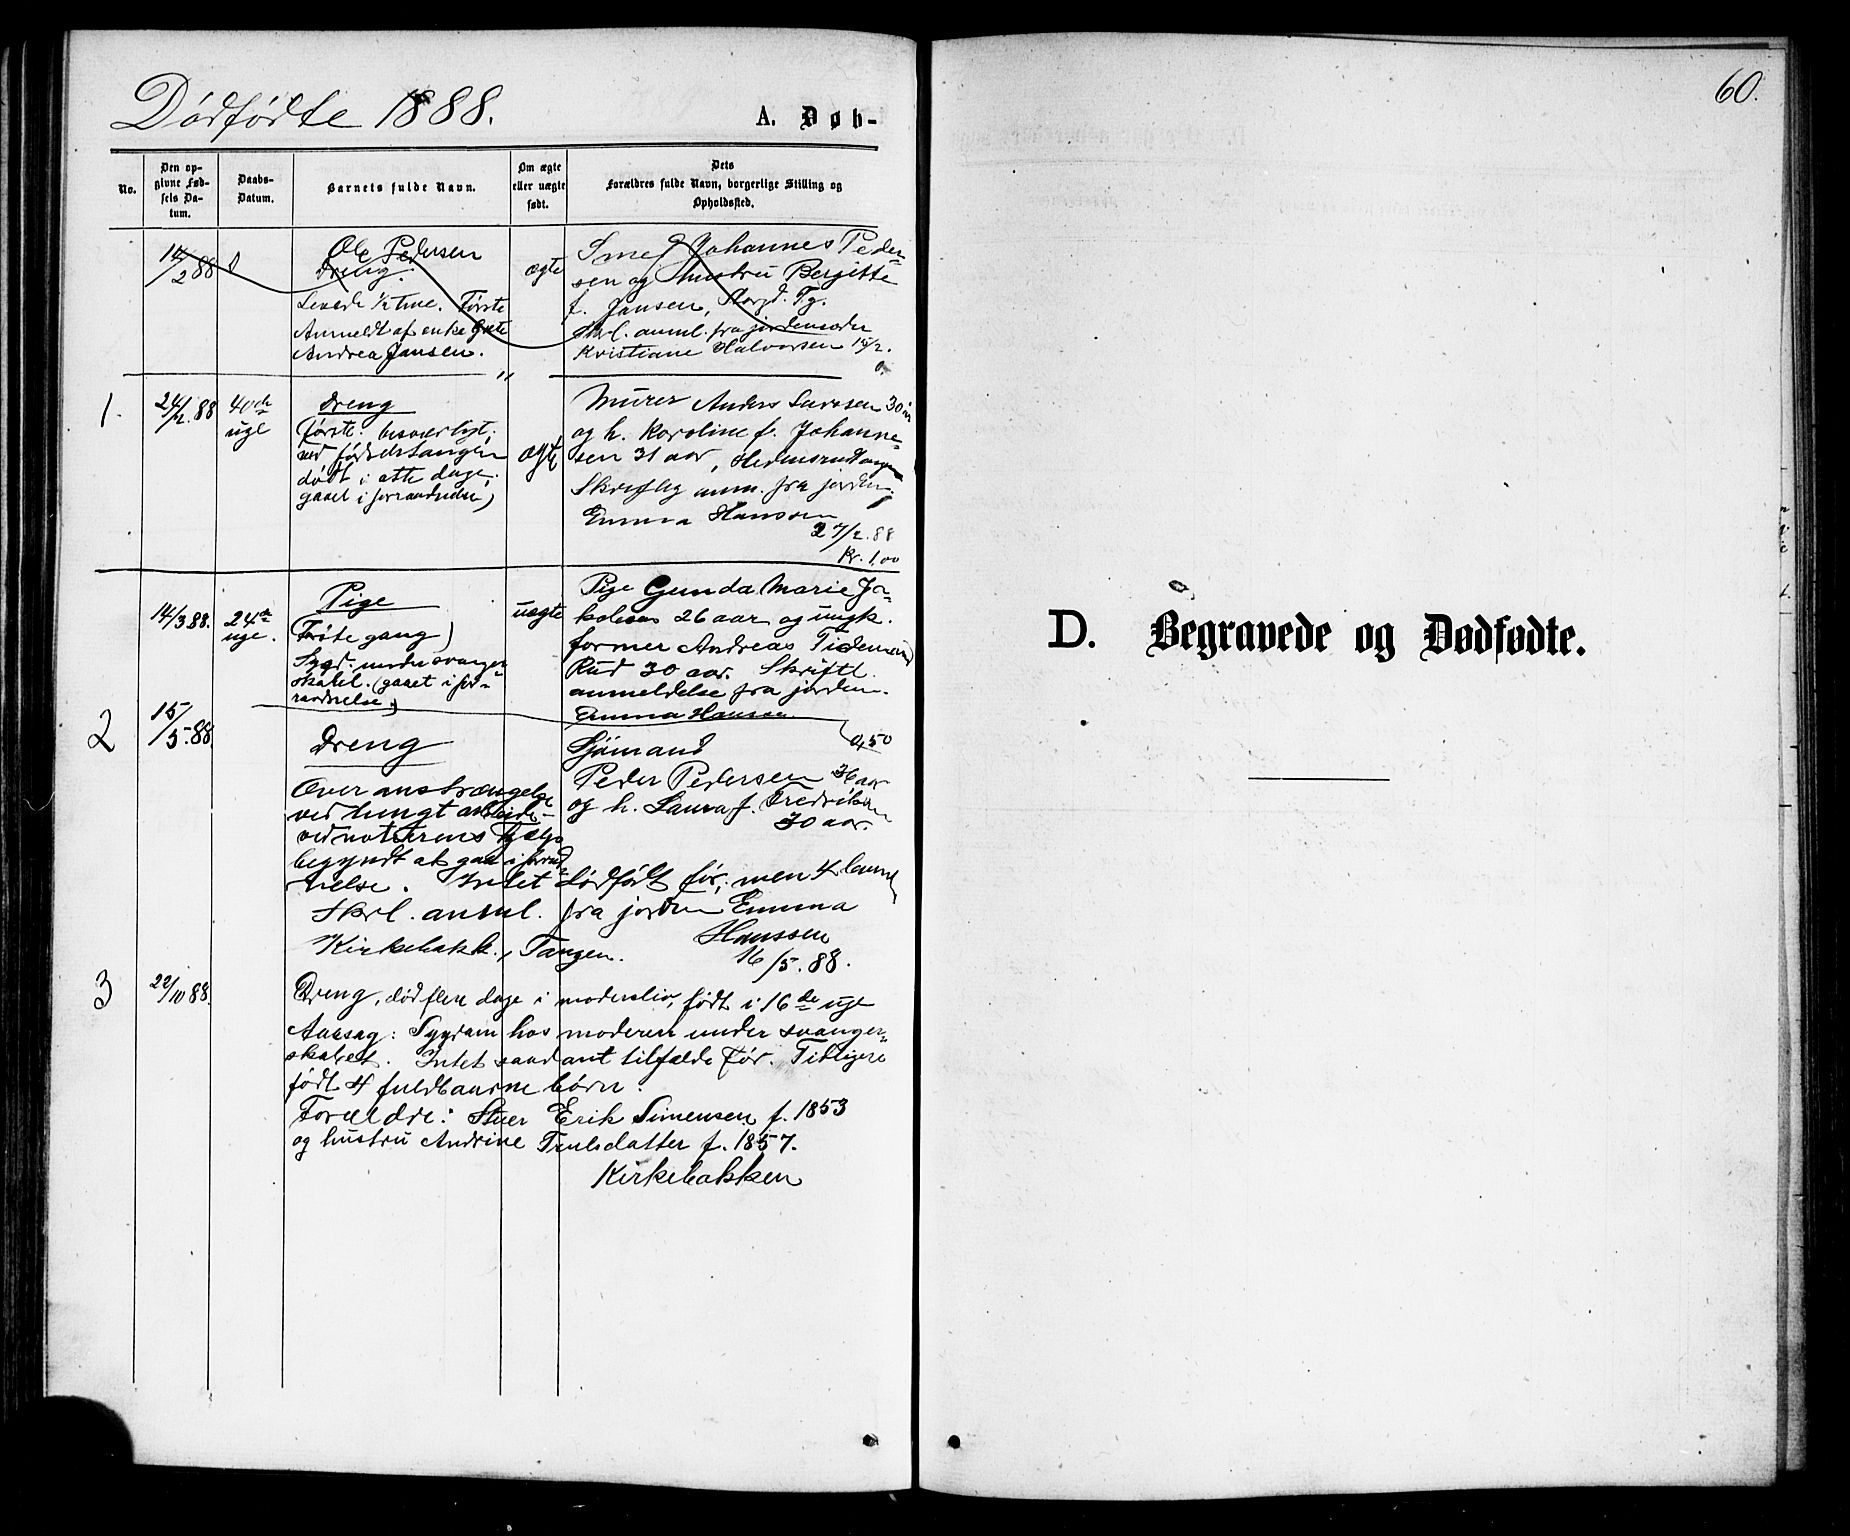 Dødfødte 1888.
A. Døb-
No.
Den op-
givne Fød-
sels Da-
tum.
Daabs-
Datum.
Barnets fulde Navn.
Om ægte
eller uægte
født.
Dets
Forældres fulde Navn, borgerlige Stilling og
Opholdssted.
14/2 88
Ole Pedersen
Dreng.
Levede ½ time. Første
Anmeldt af enke
Andrea Jansen.
ægte
Smed Johannes Peder-
sen og hustru Bergitte
f. Jansen, Tg.
Skrl. anml. fra jordemoder
Kristiane Halvorsen 15/2.
1.
24/2. 88
40de
uge
Dreng
første: besværligt;
ved fødselstangen
dødt i otte dage;
gaaet i forraadnelse)
ægte
Murer Anders Larssen 30 aar
og h. Karoline f. Johanne-
sen 31 aar,
Skriftlig anm. fra jordem.
Emma Hanssen
27/2. 88
Kr. 1,00
14/3 88.
24de
uge.
Pige
(Første gang)
Sygd. under svanger-
skabet. (gaaet i for-
raadnelse)
uægte
Pige Gunda Marie Ja-
kobsen 26 aar og ungk.
former Andreas Tidemand
Rud 30 aar. Skriftl.
anmeldelse fra jordem.
Emma Hanssen
0,50
2
15/5-88
Dreng
Over anstrængelse
ved tungt arbeide-
begyndt at gaa i forraad-
nelse. Intet dødfødt før; men 4 levend
Skrl. anml. fra jordem Emma
Hanssen
Kirkebakk., Tangen. 16/5. 88.
Sjømand
Peder Pedersen 36 aar
og h. Laura f. Fredriksen
30 aar.
3
22/10 88.
Dreng, død flere dage i moderliv, født i 16de uge
Aarsag: Sygdom hos moderen under svanger-
skabet. Intet saadant tilfælde før. Tidligere
født 4 fuldbaarne børn.
Forældre: Stuer Erik Simensen f. 1853
og hustru Andrine Trulsdatter f. 1857.
Kirkebakken
60.
D. Begravede og Dødfødte.